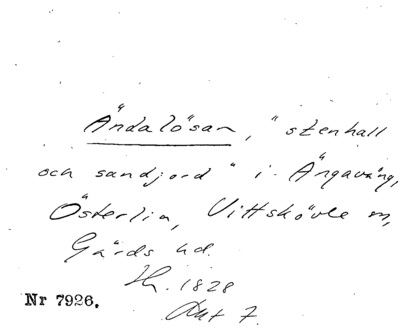 Ändalösan, "stenhall
och sandjord" i Ängavång,
Österlin, Vittskövle sn,
Gärds hd.
1828
Nr 7926.
Akt 7.